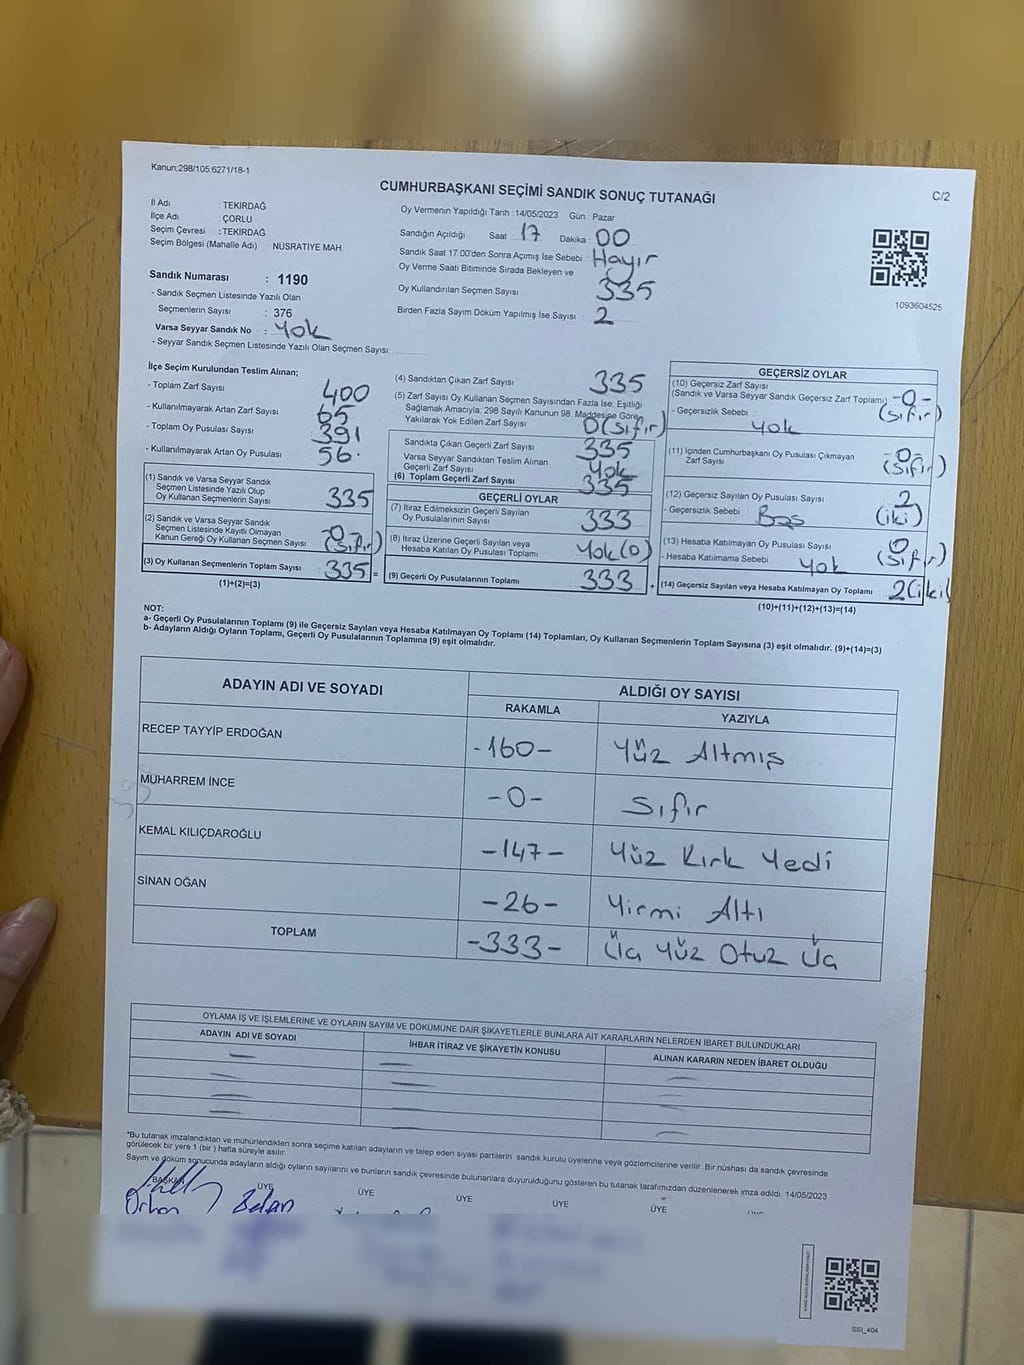 Kanun:298/105;6271/18-1
CUMHURBAŞKANI SEÇİMİ SANDIK SONUÇ TUTANAĞI
C/2
İl Adı : TEKİRDAĞ
İlçe Adı : ÇORLU
Seçim Çevresi : TEKİRDAĞ
Seçim Bölgesi (Mahalle Adı) : NUSRATİYE MAH.
Sandık Numarası : 1190
- Sandık Seçmen Listesinde Yazılı Olan
Seçmenlerin Sayısı : 376
Varsa Seyyar Sandık No : Yok
- Seyyar Sandık Seçmen Listesinde Yazılı Olan Seçmen Sayısı:
Oy Vermenin Yapıldığı Tarih : 14/05/2023 Gün : Pazar
Sandığın Açıldığı Saat : 17 Dakika : 00
Sandık Saat 17:00'den Sonra Açımış İse Sebebi : Hayır
Oy Verme Saati Bitiminde Sırada Bekleyen ve
Oy Kullandırılan Seçmen Sayısı 335
Birden Fazla Sayım Döküm Yapılmış İse Sayısı : 2
1093604525
İlçe Seçim Kurulundan Teslim Alınan;
- Toplam Zarf Sayısı 400
- Kullanılmayarak Artan Zarf Sayısı 65
- Toplam Oy Pusulası Sayısı 391
- Kullanılmayarak Artan Oy Pusulası 56
(1) Sandık ve Varsa Seyyar Sandık
Seçmen Listesinde Yazılı Olup
Oy Kullanan Seçmenlerin Sayısı 335
(2) Sandık ve Varsa Seyyar Sandık
Seçmen Listesinde Kayıtlı Olmayan
Kanun Gereği Oy Kullanan Seçmen Sayısı -0- (sıfır)
(3) Oy Kullanan Seçmenlerin Toplam Sayısı 335 =
(1)+(2)=(3)
(4) Sandıktan Çıkan Zarf Sayısı 335
(5) Zarf Sayısı Oy Kullanan Seçmen Sayısından Fazla İse, Eşitliği
Sağlamak Amacıyla; 298 Sayılı Kanunun 98. Maddesine Göre
Yakılarak Yok Edilen Zarf Sayısı 0 (sıfır)
Sandıkta Çıkan Geçerli Zarf Sayısı 335
Varsa Seyyar Sandıktan Teslim Alınan
Geçerli Zarf Sayısı Yok
(6) Toplam Geçerli Zarf Sayısı 335
GEÇERLİ OYLAR
(7) İtiraz Edilmeksizin Geçerli Sayılan
Oy Pusulalarının Sayısı 333
(8) İtiraz Üzerine Geçerli Sayılan veya
Hesaba Katılan Oy Pusulası Toplamı Yok (0)
(9) Geçerli Oy Pusulalarının Toplamı 333 +
GEÇERSİZ OYLAR
(10) Geçersiz Zarf Sayısı
(Sandık ve Varsa Seyyar Sandık Geçersiz Zarf Toplamı) -0- (sıfır)
- Geçersizlik Sebebi : Yok
(11) İçinden Cumhurbaşkanı Oy Pusulası Çıkmayan
Zarf Sayısı -0- (sıfır)
(12) Geçersiz Sayılan Oy Pusulası Sayısı 2
- Geçersizlik Sebebi : Boş (iki)
(13) Hesaba Katılmayan Oy Pusulası Sayısı 0
- Hesaba Katılmama Sebebi : Yok (sıfır)
(14) Geçersiz Sayılan veya Hesaba Katılmayan Oy Toplamı : 2 (iki)
(10)+(11)+(12)+(13)=(14)
NOT:
a- Geçerli Oy Pusulalarının Toplamı (9) ile Geçersiz Sayılan veya Hesaba Katılmayan Oy Toplamı (14) Toplamları, Oy Kullanan Seçmenlerin Toplam Sayısına (3) eşit olmalıdır. (9)+(14)=(3)
b- Adayların Aldığı Oyların Toplamı, Geçerli Oy Pusulalarının Toplamına (9) eşit olmalıdır.
ADAYIN ADI VE SOYADI ALDIĞI OY SAYISI
RAKAMLA YAZIYLA
RECEP TAYYİP ERDOĞAN -160- Yüz Altmış
MUHARREM İNCE -0- Sıfır
KEMAL KILIÇDAROĞLU -147- Yüz Kırk Yedi
SİNAN OĞAN -26- Yirmi Altı
TOPLAM -333- Üç Yüz Otuz Üç
OYLAMA İŞ VE İŞLEMLERİNE VE OYLARIN SAYIM VE DÖKÜMÜNE DAİR ŞİKAYETLERLE BUNLARA AİT KARARLARIN NELERDEN İBARET BULUNDUKLARI
ADAYIN ADI VE SOYADI İHBAR İTİRAZ VE ŞİKAYETİN KONUSU ALINAN KARARIN NEDEN İBARET OLDUĞU
*Bu tutanak imzalandıktan ve mühürlendikten sonra seçime katılan adayların ve talep eden siyasi partilerin sandık kurulu üyelerine veya gözlemcilerine verilir. Bir nüshası da sandık çevresinde
görülecek bir yere 1 (bir) hafta süreyle asılır.
Sayım ve döküm sonucunda adayların aldığı oyların sayılarını ve bunların sandık çevresinde bulunanlara duyurulduğunu gösteren bu tutanak tarafımızdan düzenlenerek imza edildi. 14/05/2023
BAŞKAN ÜYE ÜYE ÜYE ÜYE ÜYE
Orhan
SSI_404